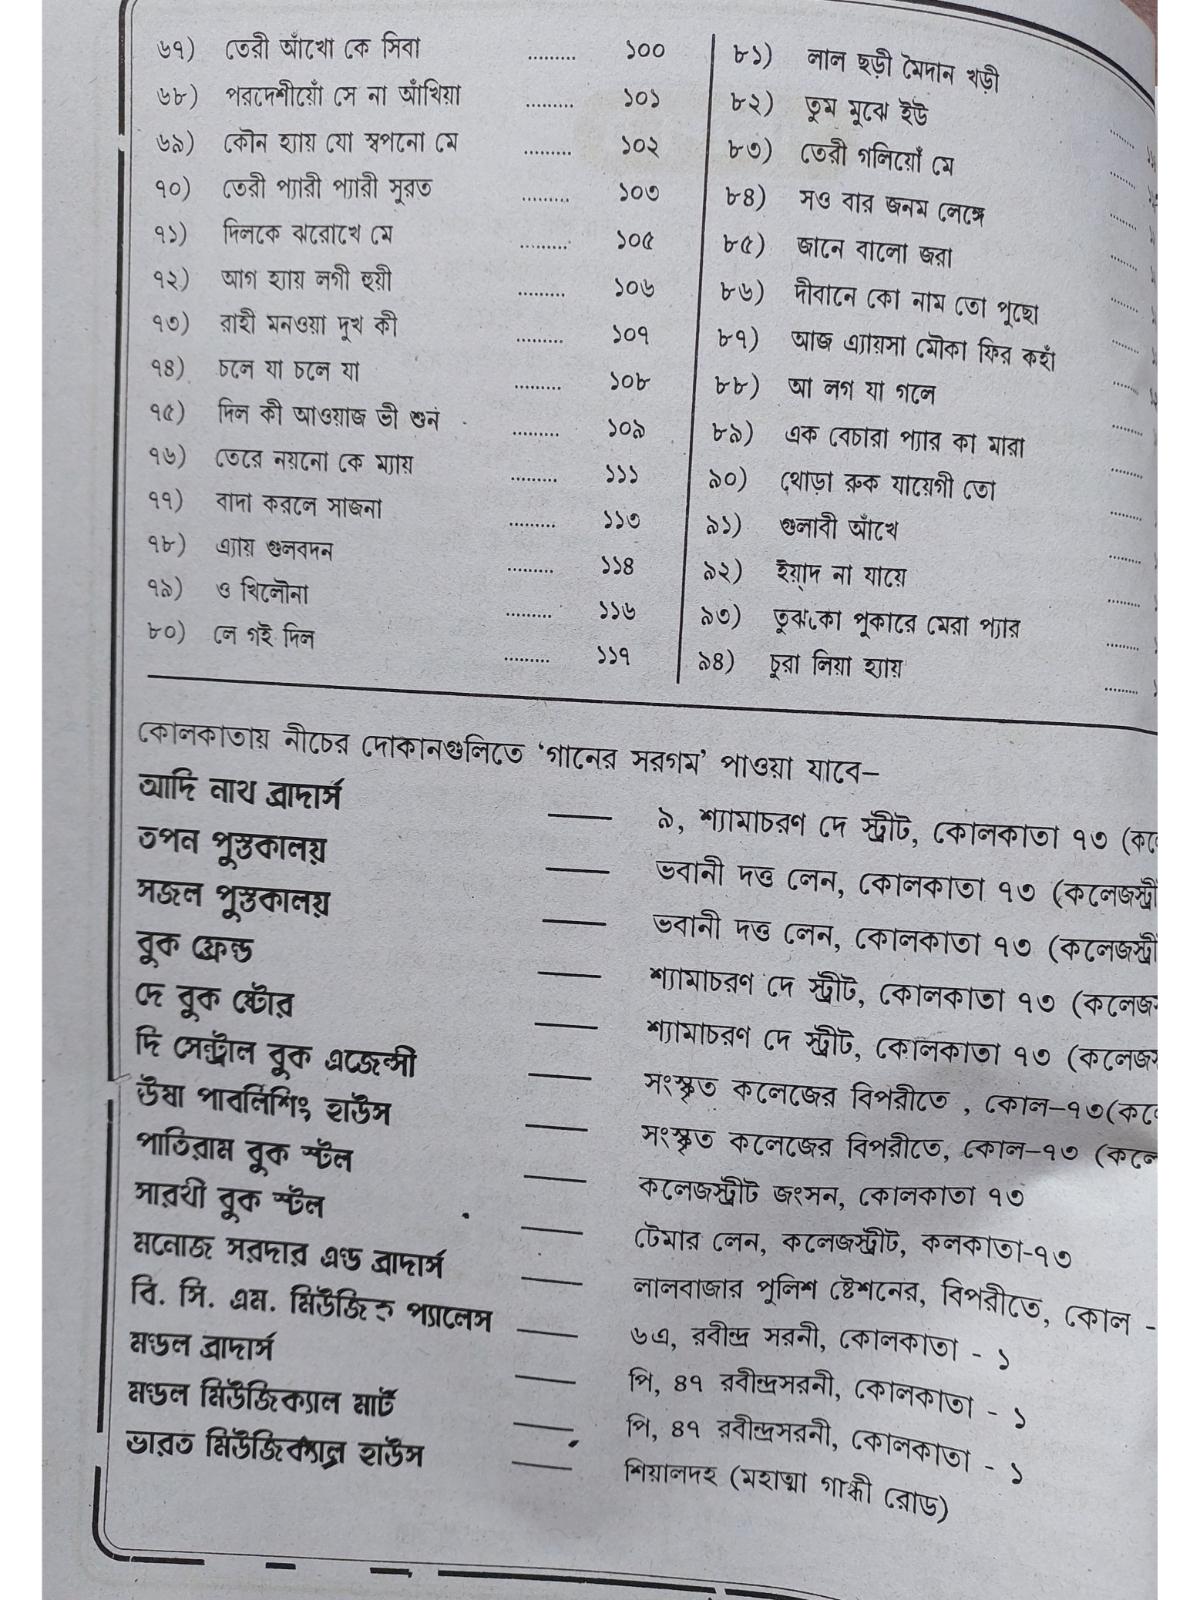 ৬৭) তেরী আঁখো কে সিবা ......... ১০০
৬৮) পরদেশীয়োঁ সে না আঁখিয়া ......... ১০১
৬৯) কৌন হ্যায় যো স্বপনো মে ......... ১০২
৭০) তেরী প্যারী প্যারী সুরত ......... ১০৩
৭১) দিলকে ঝরোখে মে ......... ১০৫
৭২) আগ হ্যায় লগী হুয়ী ......... ১০৬
৭৩) রাহী মনওয়া দুখ কী ......... ১০৭
৭৪) চলে যা চলে যা ......... ১০৮
৭৫) দিল কী আওয়াজ ভী শুন ......... ১০৯
৭৬) তেরে নয়নো কে ম্যায় ......... ১১১
৭৭) বাদা করলে সাজনা ......... ১১৩
৭৮) এ্যায় গুলবদন ......... ১১৪
৭৯) ও খিলৌনা ......... ১১৬
৮০) লে গই দিল ......... ১১৭
৮১) লাল ছড়ী মৈদান খড়ী
৮২) তুম মুঝে ইউ .........
৮৩) তেরী গলিয়োঁ মে .........
৮৪) সও বার জনম লেঙ্গে .........
৮৫) জানে বালো জরা .........
৮৬) দীবানে কো নাম তো পুছো .........
৮৭) আজ এ্যায়সা মৌকা ফির কহাঁ .........
৮৮) আ লগ যা গলে .........
৮৯) এক বেচারা প্যার কা মারা .........
৯০) থোড়া রুক যায়েগী তো .........
৯১) গুলাবী আঁখে .........
৯২) ইয়াদ না যায়ে .........
৯৩) তুঝকো পুকারে মেরা প্যার .........
৯৪) চুরা লিয়া হ্যায় .........
কোলকাতায় নীচের দোকানগুলিতে ‘গানের সরগম’ পাওয়া যাবে–
আদি নাথ ব্রাদার্স — ৯, শ্যামাচরণ দে স্ট্রীট, কোলকাতা ৭৩
তপন পুস্তকালয় — ভবানী দত্ত লেন, কোলকাতা ৭৩ (কলেজস্ট্রী
সজল পুস্তকালয় — ভবানী দত্ত লেন, কোলকাতা ৭৩ (কলেজস্ট্রী
বুক ফ্রেন্ড — শ্যামাচরণ দে স্ট্রীট, কোলকাতা ৭৩ (কলেজ
দে বুক ষ্টোর — শ্যামাচরণ দে স্ট্রীট, কোলকাতা ৭৩ (কলেজ
দি সেন্ট্রাল বুক এজেন্সী — সংস্কৃত কলেজের বিপরীতে , কোল–৭৩(কলে
ঊষা পাবলিশিং হাউস — সংস্কৃত কলেজের বিপরীতে, কোল–৭৩ (কলে
পাতিরাম বুক স্টল — কলেজস্ট্রীট জংসন, কোলকাতা ৭৩
সারথী বুক স্টল — টেমার লেন, কলেজস্ট্রীট, কলকাতা-৭৩
মনোজ সরদার এন্ড ব্রাদার্স — লালবাজার পুলিশ ষ্টেশনের, বিপরীতে, কোল -
বি. সি. এম. মিউজিক প্যালেস — ৬এ, রবীন্দ্র সরনী, কোলকাতা - ১
মণ্ডল ব্রাদার্স — পি, ৪৭ রবীন্দ্রসরনী, কোলকাতা - ১
মণ্ডল মিউজিক্যাল মার্ট — পি, ৪৭ রবীন্দ্রসরনী, কোলকাতা - ১
ভারত মিউজিক্যাল হাউস — শিয়ালদহ (মহাত্মা গান্ধী রোড)